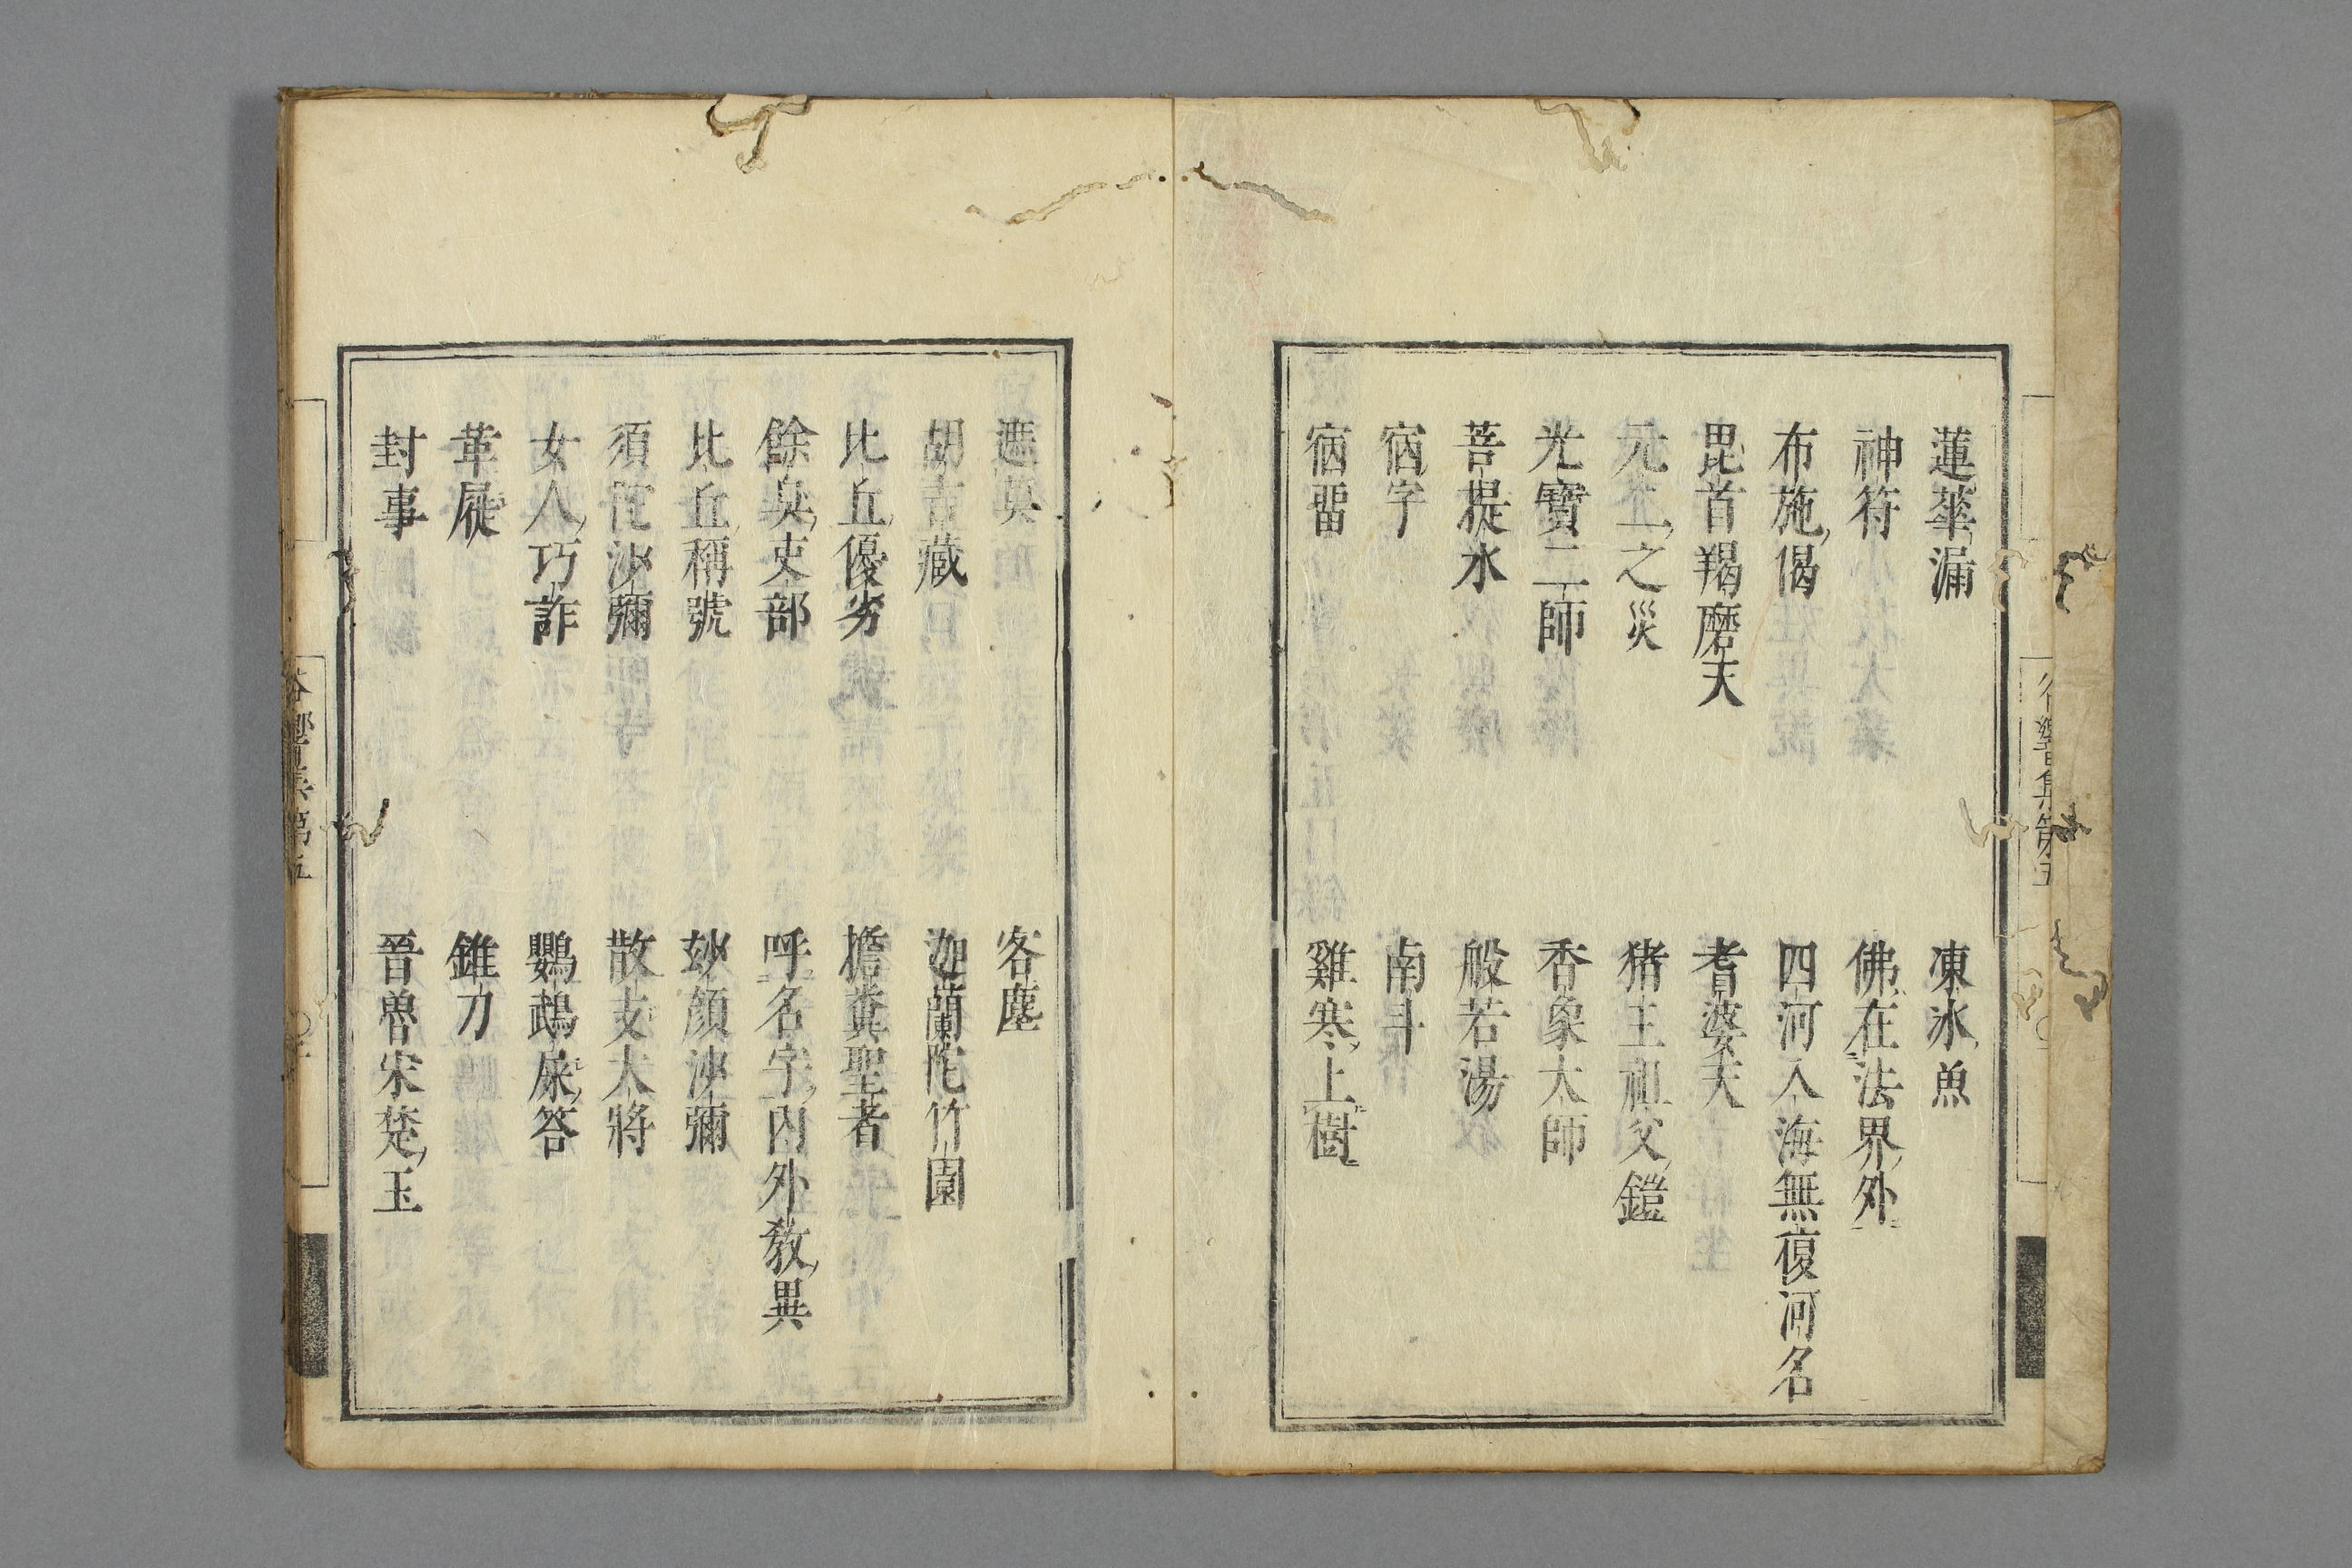 蓮華漏　凍冰魚
神符　佛在法界外
布施偈　四河入海無復河名
毘首羯磨天　耆婆天
元正一之災　猪王祖父鎧
光寶二師　香象大師
菩提水　般若湯
宿字　南斗
宿習　雞寒上樹
谷響集第五
遮莫　客塵
胡吉藏　迦蘭陀竹園
比丘優劣　擔糞聖者
餘臭吏部　呼名字內外教異
比丘稱號　玅顏沙彌
須陀沙彌　散支大將
女人巧詐　鸚鵡屎答
革屣　錐刀
封事　晉魯宋楚玉
谷響集第五